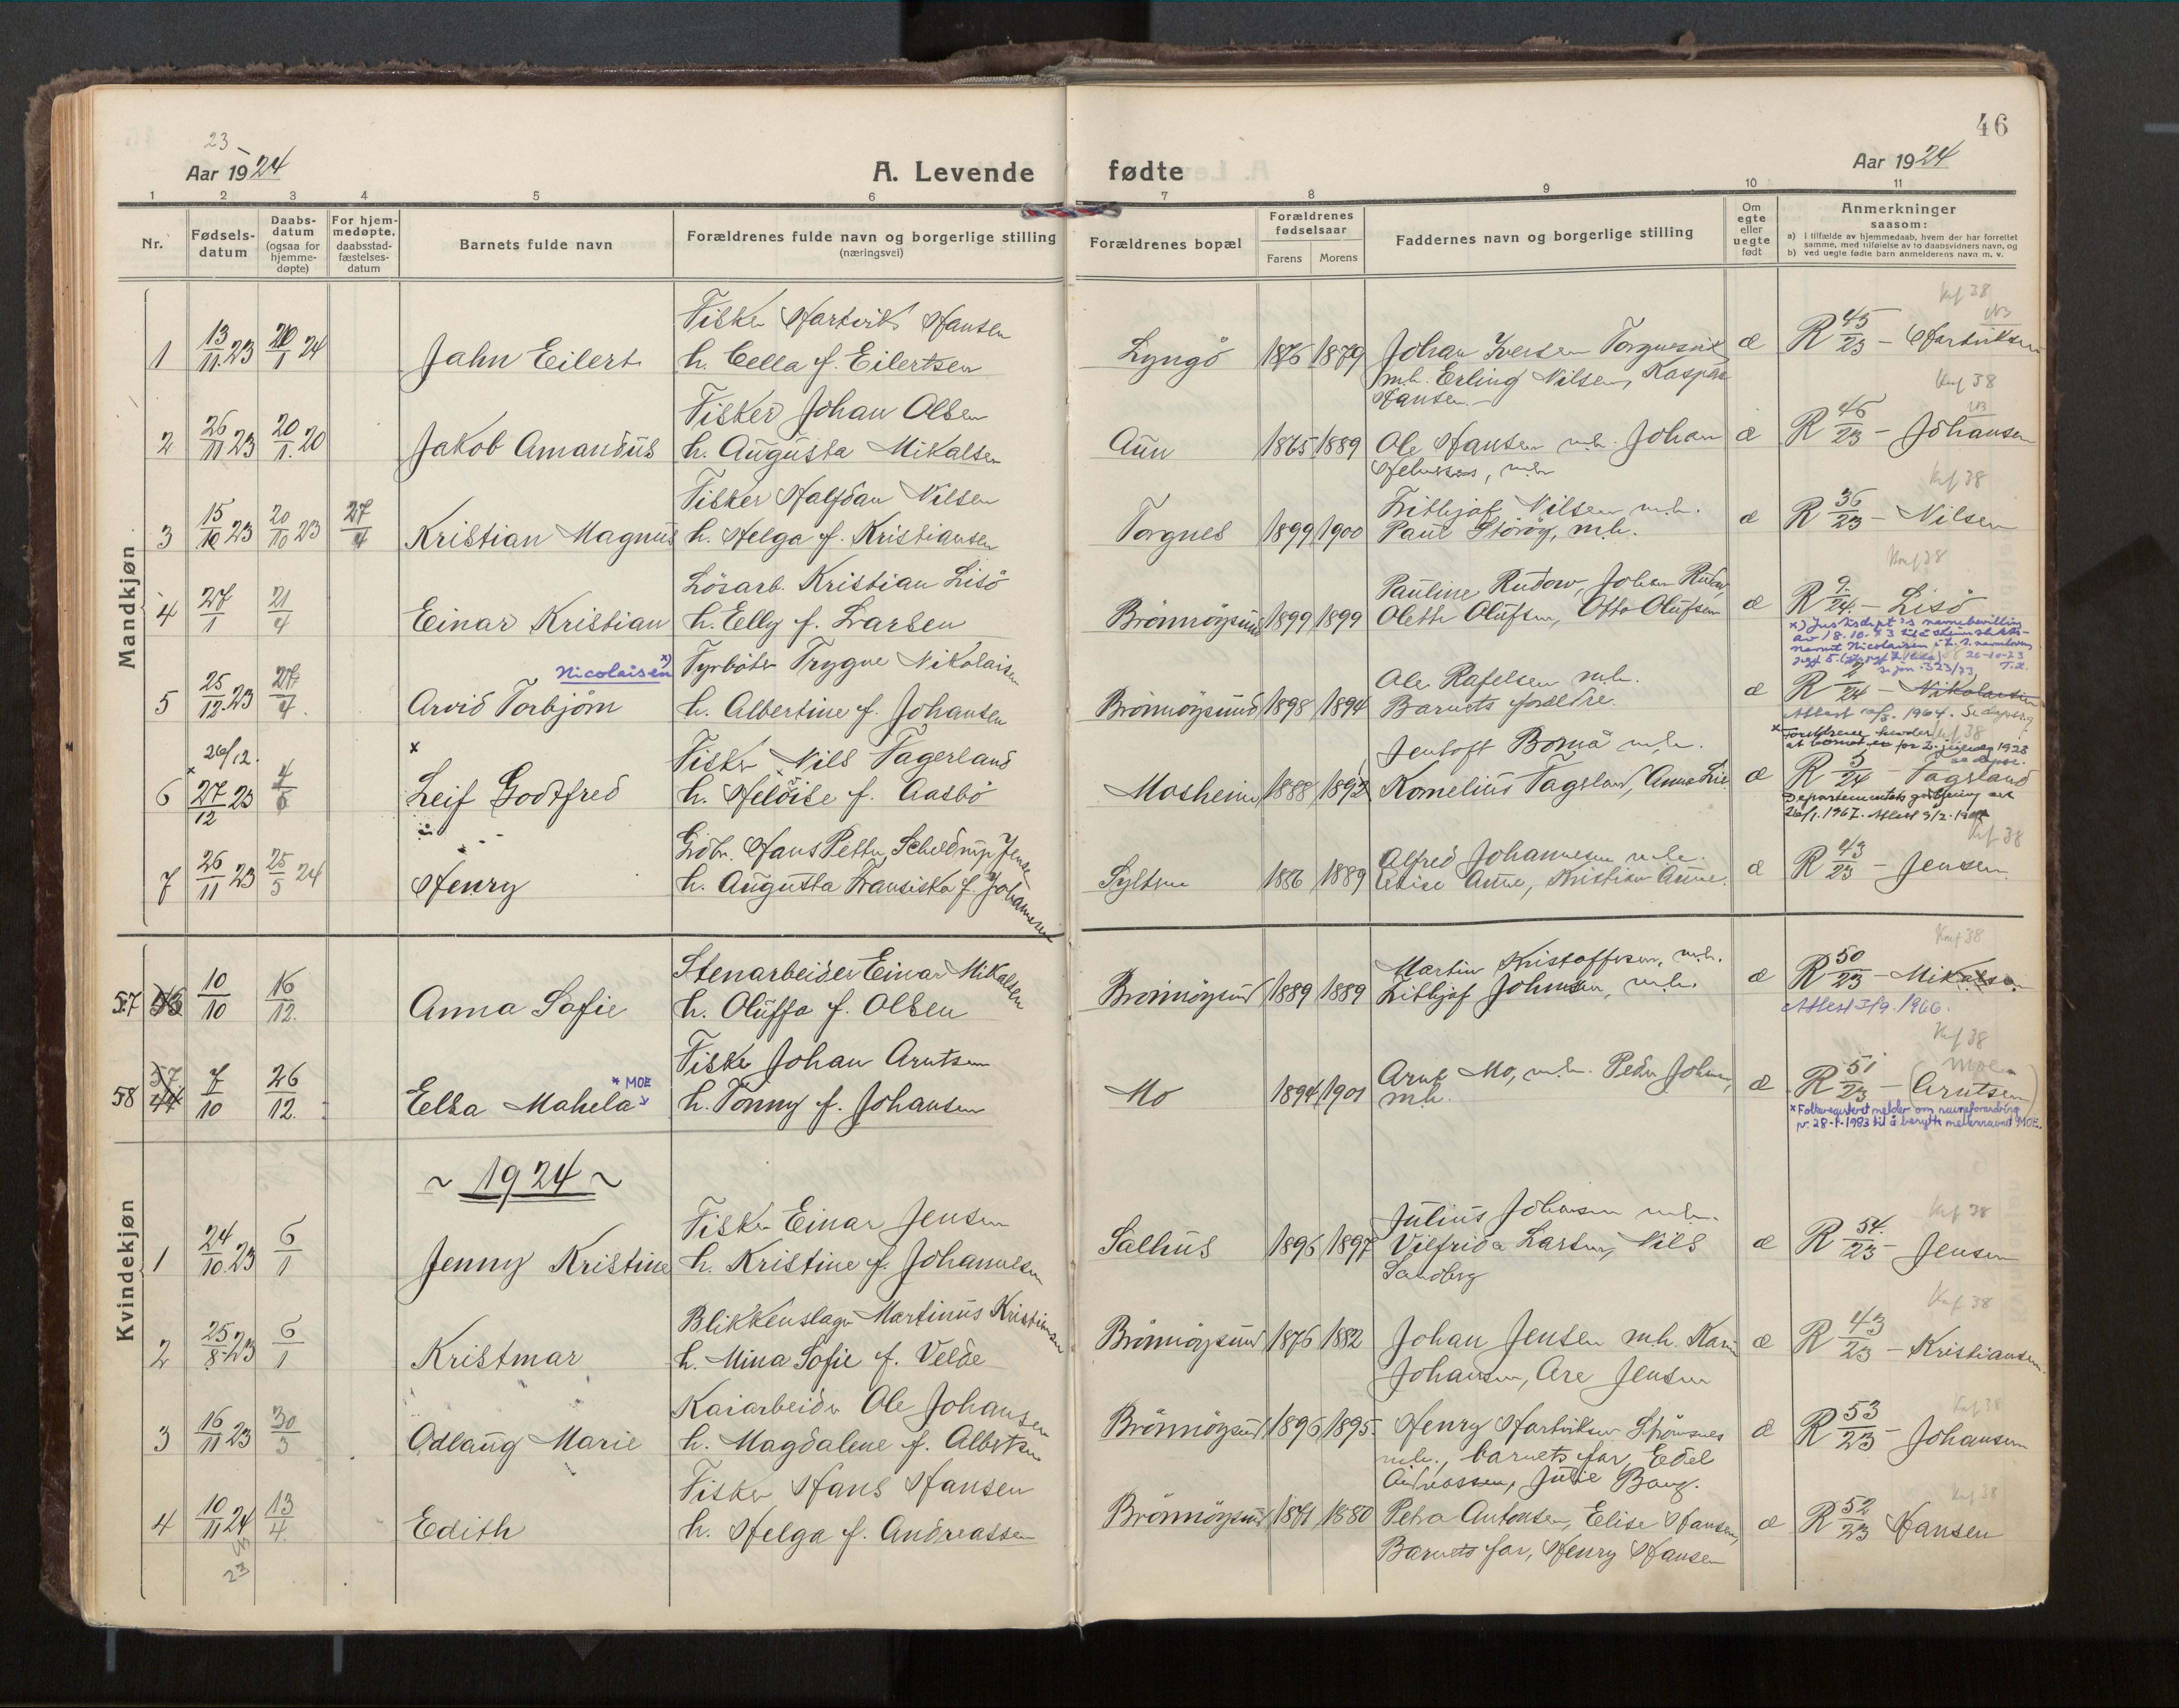 46
23-
Aar 1924
A. Levende fødte
Aar 1924
1 2 3 4 5 6 7 8 9 10 11
Nr.
Fødsels-
datum
Daabs-
datum
(ogsaa for
hjemme-
døpte)
For hjem-
medøpte,
daabsstad-
fæstelses-
datum
Barnets fulde navn
Forældrenes fulde navn og borgerlige stilling
(næringsvei)
Forældrenes bopæl
Forældrenes
fødselsaar
Farens Morens
Faddernes navn og borgerlige stilling
Om
egte
eller
uegte
født
Anmerkninger
saasom:
a) i tilfælde av hjemmedaab, hvem der har forrettet
samme, med tilføielse av to daabsvidners navn, og
b) ved uegte fødte barn anmelderens navn m. v.
Mandkjøn
Konf 38
Fisker Hartvik Hansen
1 13/11.23 20/1 24 Jahn Eilert h. Cella f. Eilertsen Lyngö 1876 1879 Johan Iversen Torgnesvik æ R 45/23 - Hartviksen
m.h. Erling Nilsen, Kaspar
Hansen.-
Konf 38
Fisker Johan Olsen
2 26/11 23 20/1.20 Jakob Amandus h. Augusta Mikalsen Aun 1865 1889 Ole Hansen m.h. Johan æ R 46/23 - Johansen
Konf 38
Fisker Halfdan Nilsen Fithjof Nilsen m.h.
3 15/10 23 20/10 23 27/4 Kristian Magnus h. Helga f. Kristiansen Torgnes 1899 1900 Paul Storöy, m.h. æ R 36/23 - Nilsen
Konf 38
Lösarb. Kristian Lisö Pauline Rudow, Johan Rudow,
4 27/1 21/4 Einar Kristian h. Elly f. Larsen Brönnöysund 1899 1899 Olette Olufsen, Otto Olufsen æ R 9/24. - Lisö
x) Justisdept's navnebevilling
Nicolaisen x)
Fyrböter Trygve Nikolaisen Ole Rafelsen m.h.
5 25/12.23 27/4. Arvid Torbjörn h. Albertine f. Johansen Brönnöysund 1898 1894 Barnets foreldre. æ R 2/24 - Nikolaisen
26/12.
Konf 38
x
Fisker Nils Fagerland Jentoft Bomå m.h.
6 27/12 23 4/5 Leif Godtfred h. Helöise f. Aasbö Mosheim 1888 1892 Kornelius Fagerland, Anna Lise æ R 3/24 - Fagerland
Departementets godkjenning av
26/1.1967.
Konf 38
Gdbr. Hans Petter Scheldrup Jensen Alfred Johannesen m.h.
7 26/11 23 25/5 24 Henry h. Augusta Fransiska f. Johannesen Sylten 1886 1889 Elise Aune, Kristian Aune. æ R 43/23 - Jensen
Kvindekjøn
Konf 38
Stenarbeider Einar Mikalsen Martin Kristoffersen, m.h.
57 10/10 16/12. Anna Sofie h. Oluffa f. Olsen Brönnöysund 1889 1889 Fithjof Johansen, m.h. æ R 50/23 - Mikalsen
Attest 7/9.1966.
Konf 38
Moe
Fisker Johan Arntsen
* MOE
58 7/10 26/12. Elsa Mahela h. Tonny f. Johansen Mo 1894 1901 Arnt Mo, m.h. Peder Johnsen, æ R 51/23 - (Arntsen)
m.h.
x Folkeregisteret melder om navneforandring
pr. 28-1-1983 til å benytte mellomnavnet MOE.
~ 1924 ~
Konf 38
Fisker Einar Jensen Julius Johansen m.h.
1 24/10.23 6/1 Jenny Kristine h. Kristine f. Johannesen Salhus 1896 1897 Vilfrida Larsen, Nils æ R 54./23 - Jensen
Sandberg
Konf 38
Blikkenslager Martinus Kristiansen
2 25/8.23 6/1 Kristmar h. Mina Sofie f. Velde Brönnöysund 1876 1882 Johan Jensen m.h. Karen æ R 43/23 - Kristiansen
Johansen, Are Jensen
Konf 38
Kaiarbeider Ole Johansen
3 16/11 23 30/3 Odlaug Marie h. Magdalene f. Albertsen Brönnöysund 1896 1895. Henry Hartviksen Strömsnes æ R 53/23 - Johansen
m.h., barnets far, Edel
Andreassen, Julie Bang.
Konf 38
Fisker Hans Hansen
4 10/11 24 13/4. Edith h. Helga f. Andreassen Brönnöysund 1871 1880 Petra Antonsen, Elise Hansen, æ R 52/23 Hansen
23
Barnets far, Henry Hansen